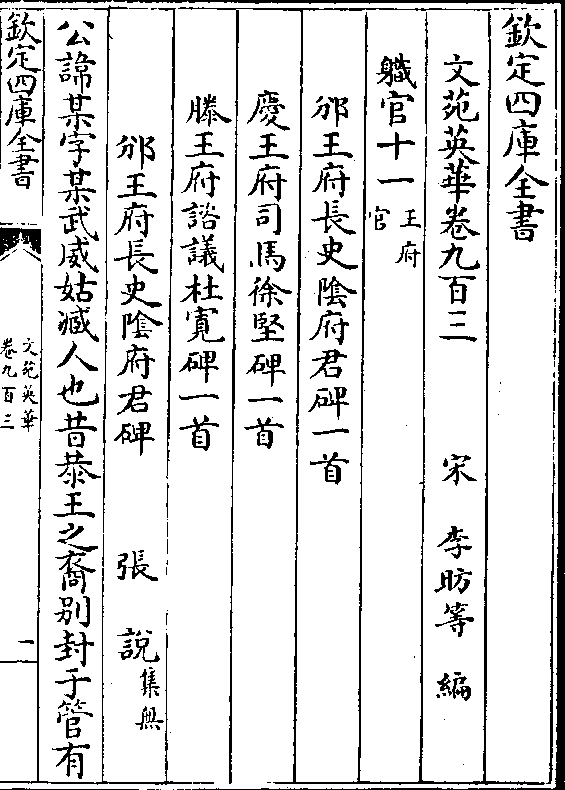 欽定四庫全書
文苑英華卷九百三
宋 李昉等 編
職官十一
王府
官
邠王府長史陰府君碑一首
慶王府司馬徐堅碑一首
滕王府諮議杜寛碑一首
邠王府長史陰府君碑
張說
集無
公諱某字某武威姑臧人也昔恭王之裔別封于管有
欽定四庫全書
文苑英華
卷九百三
一